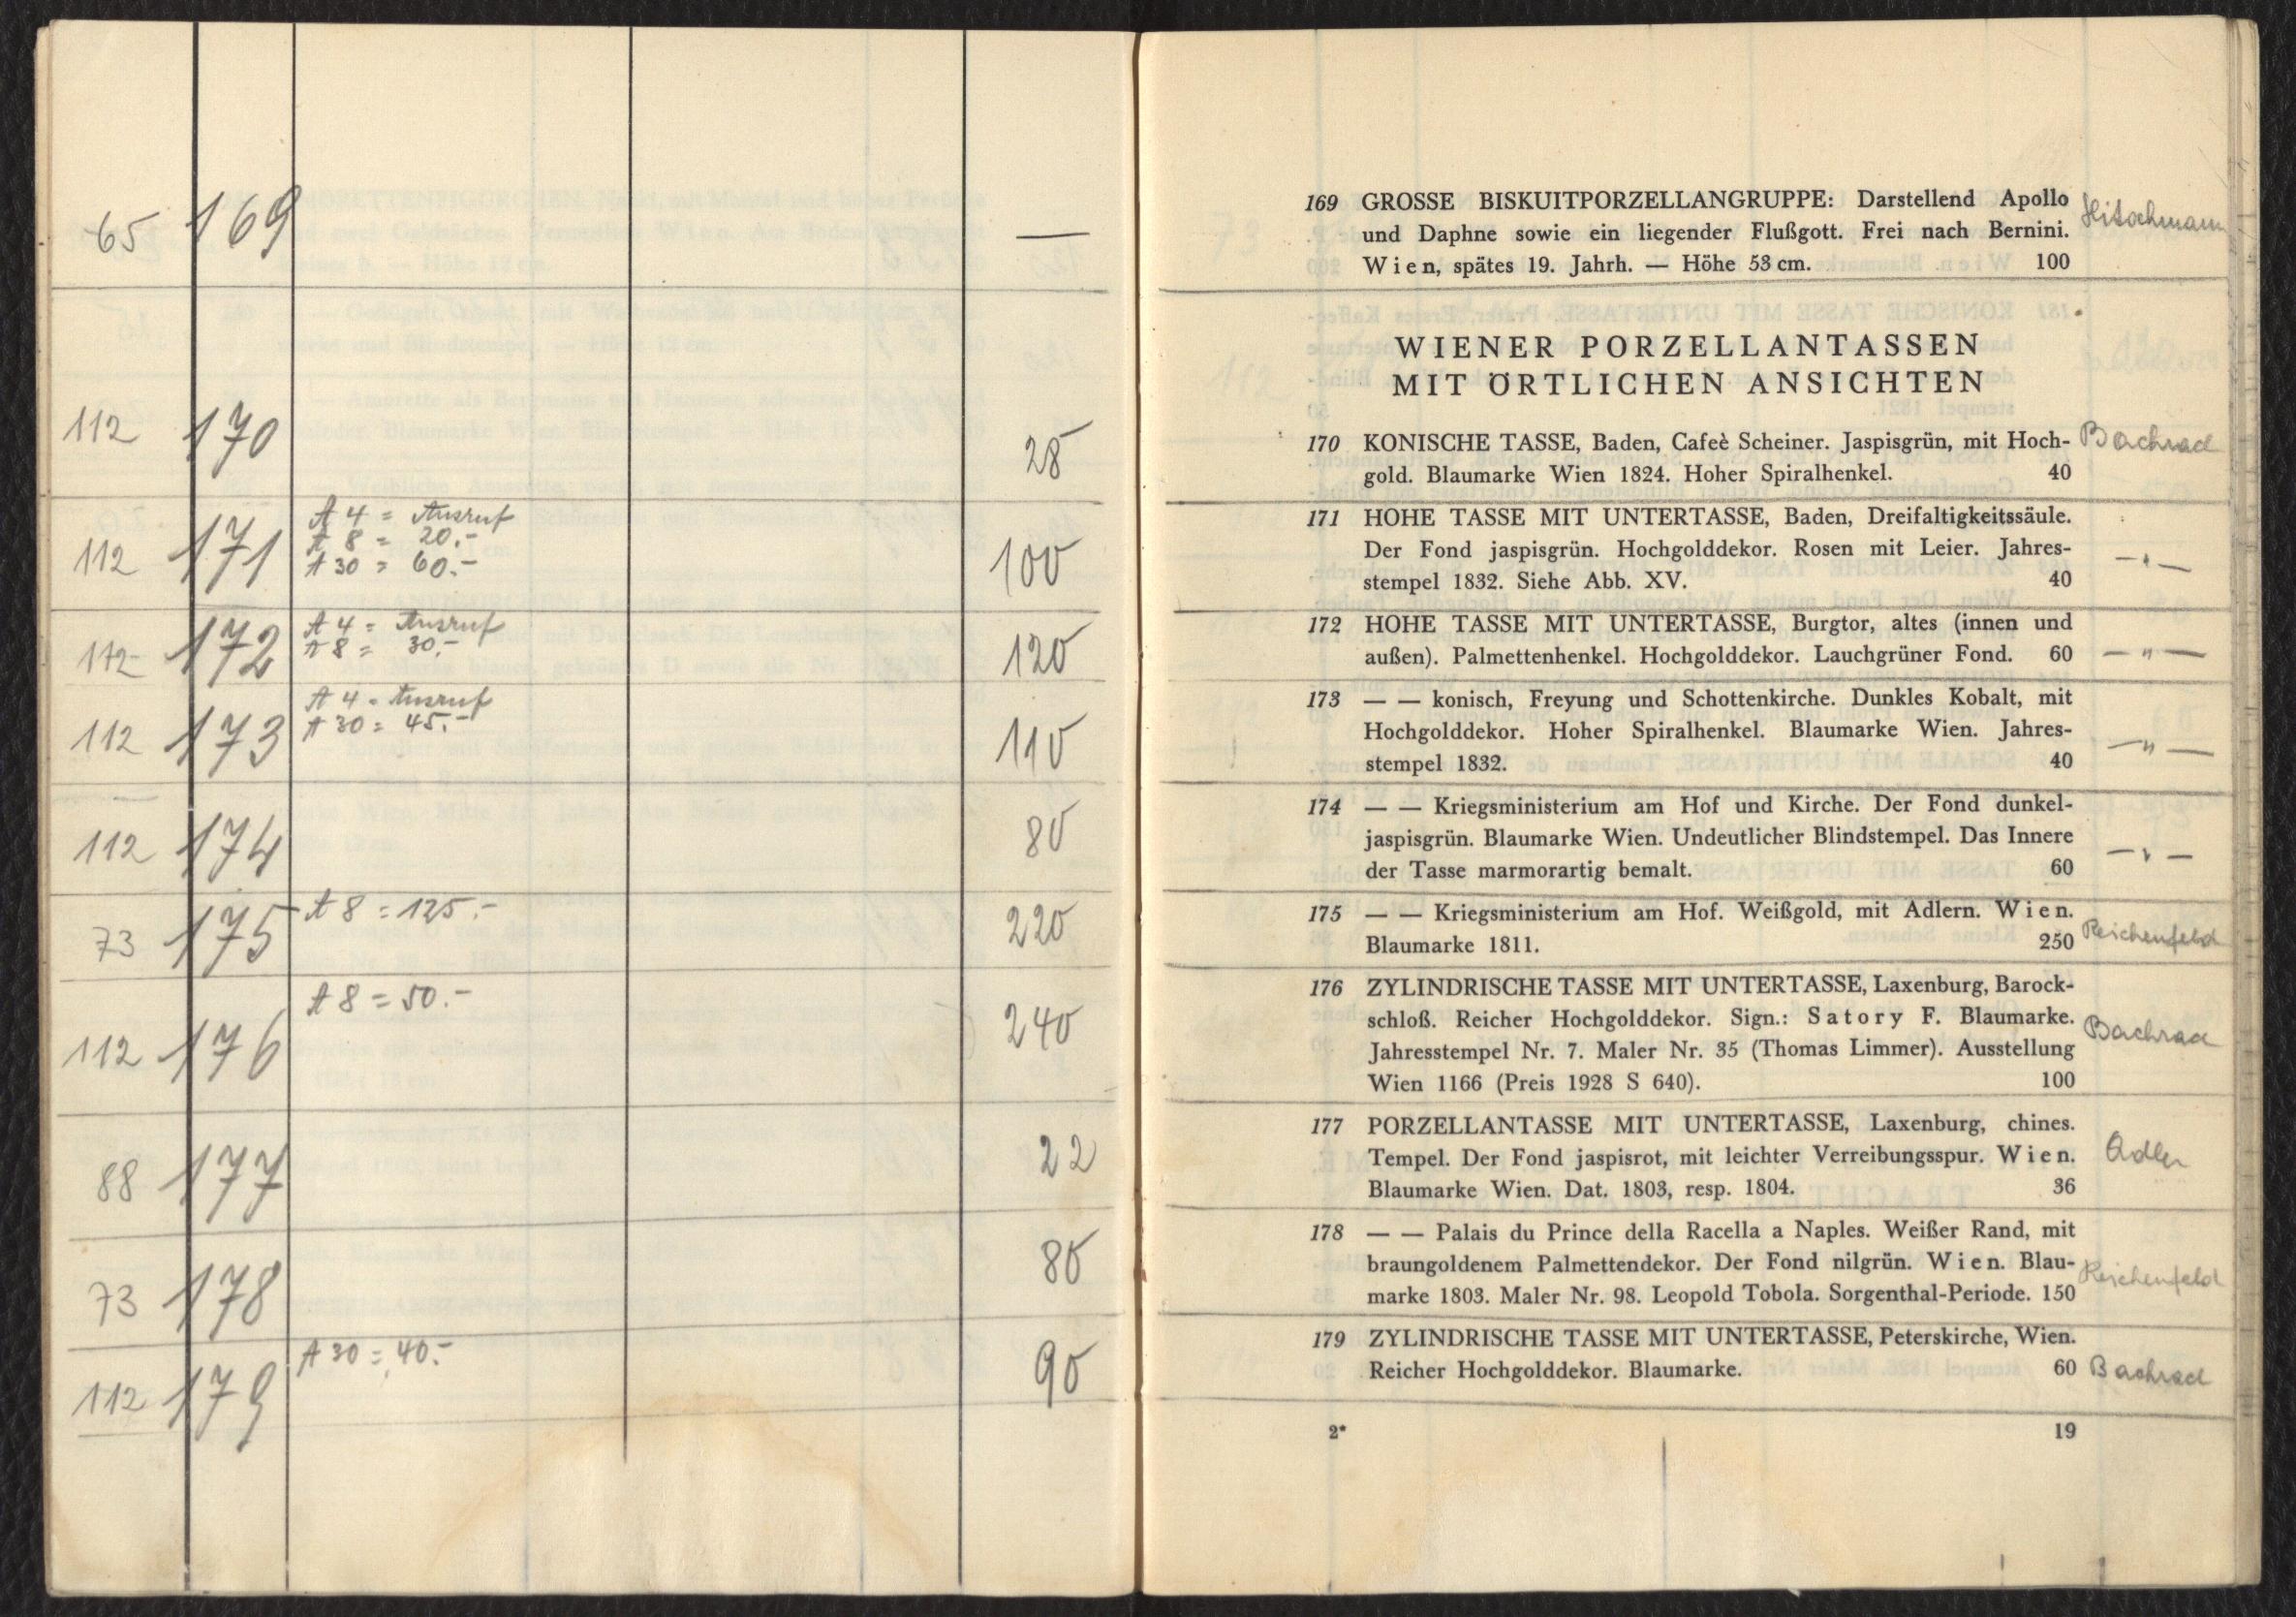 65 169 —
112 170 28
112 171 A 4 = Ausruf 100
A 8 = 20.-
A 30 = 60.-
112 172 A 4 = Ausruf 120
A 8 = 30.-
112 173 A 4 = Ausruf 110
A 30 = 45.-
112 174 80
73 175 A 8 = 125.- 220
112 176 A 8 = 50.- 240
88 177 22
73 178 80
112 179 A 30 = 40.- 90
169 GROSSE BISKUITPORZELLANGRUPPE: Darstellend Apollo Hitschmann
und Daphne sowie ein liegender Flußgott. Frei nach Bernini.
Wien, spätes 19. Jahrh. — Höhe 53 cm. 100
WIENER PORZELLANTASSEN
MIT ÖRTLICHEN ANSICHTEN
170 KONISCHE TASSE, Baden, Cafeè Scheiner. Jaspisgrün, mit Hoch- Bachrad
gold. Blaumarke Wien 1824. Hoher Spiralhenkel. 40
171 HOHE TASSE MIT UNTERTASSE, Baden, Dreifaltigkeitssäule.
Der Fond jaspisgrün. Hochgolddekor. Rosen mit Leier. Jahres- — " —
stempel 1832. Siehe Abb. XV. 40
172 HOHE TASSE MIT UNTERTASSE, Burgtor, altes (innen und
außen). Palmettenhenkel. Hochgolddekor. Lauchgrüner Fond. 60 — " —
173 — — konisch, Freyung und Schottenkirche. Dunkles Kobalt, mit
Hochgolddekor. Hoher Spiralhenkel. Blaumarke Wien. Jahres- — " —
stempel 1832. 40
174 — — Kriegsministerium am Hof und Kirche. Der Fond dunkel-
jaspisgrün. Blaumarke Wien. Undeutlicher Blindstempel. Das Innere — " —
der Tasse marmorartig bemalt. 60
175 — — Kriegsministerium am Hof. Weißgold, mit Adlern. Wien. Reichenfeld
Blaumarke 1811. 250
176 ZYLINDRISCHE TASSE MIT UNTERTASSE, Laxenburg, Barock-
schloß. Reicher Hochgolddekor. Sign.: Satory F. Blaumarke. Bachrad
Jahresstempel Nr. 7. Maler Nr. 35 (Thomas Limmer). Ausstellung
Wien 1166 (Preis 1928 S 640). 100
177 PORZELLANTASSE MIT UNTERTASSE, Laxenburg, chines.
Tempel. Der Fond jaspisrot, mit leichter Verreibungsspur. Wien. Adler
Blaumarke Wien. Dat. 1803, resp. 1804. 36
178 — — Palais du Prince della Racella a Naples. Weißer Rand, mit
braungoldenem Palmettendekor. Der Fond nilgrün. Wien. Blau- Reichenfeld
marke 1803. Maler Nr. 98. Leopold Tobola. Sorgenthal-Periode. 150
179 ZYLINDRISCHE TASSE MIT UNTERTASSE, Peterskirche, Wien.
Reicher Hochgolddekor. Blaumarke. 60 Bachrad
2* 19